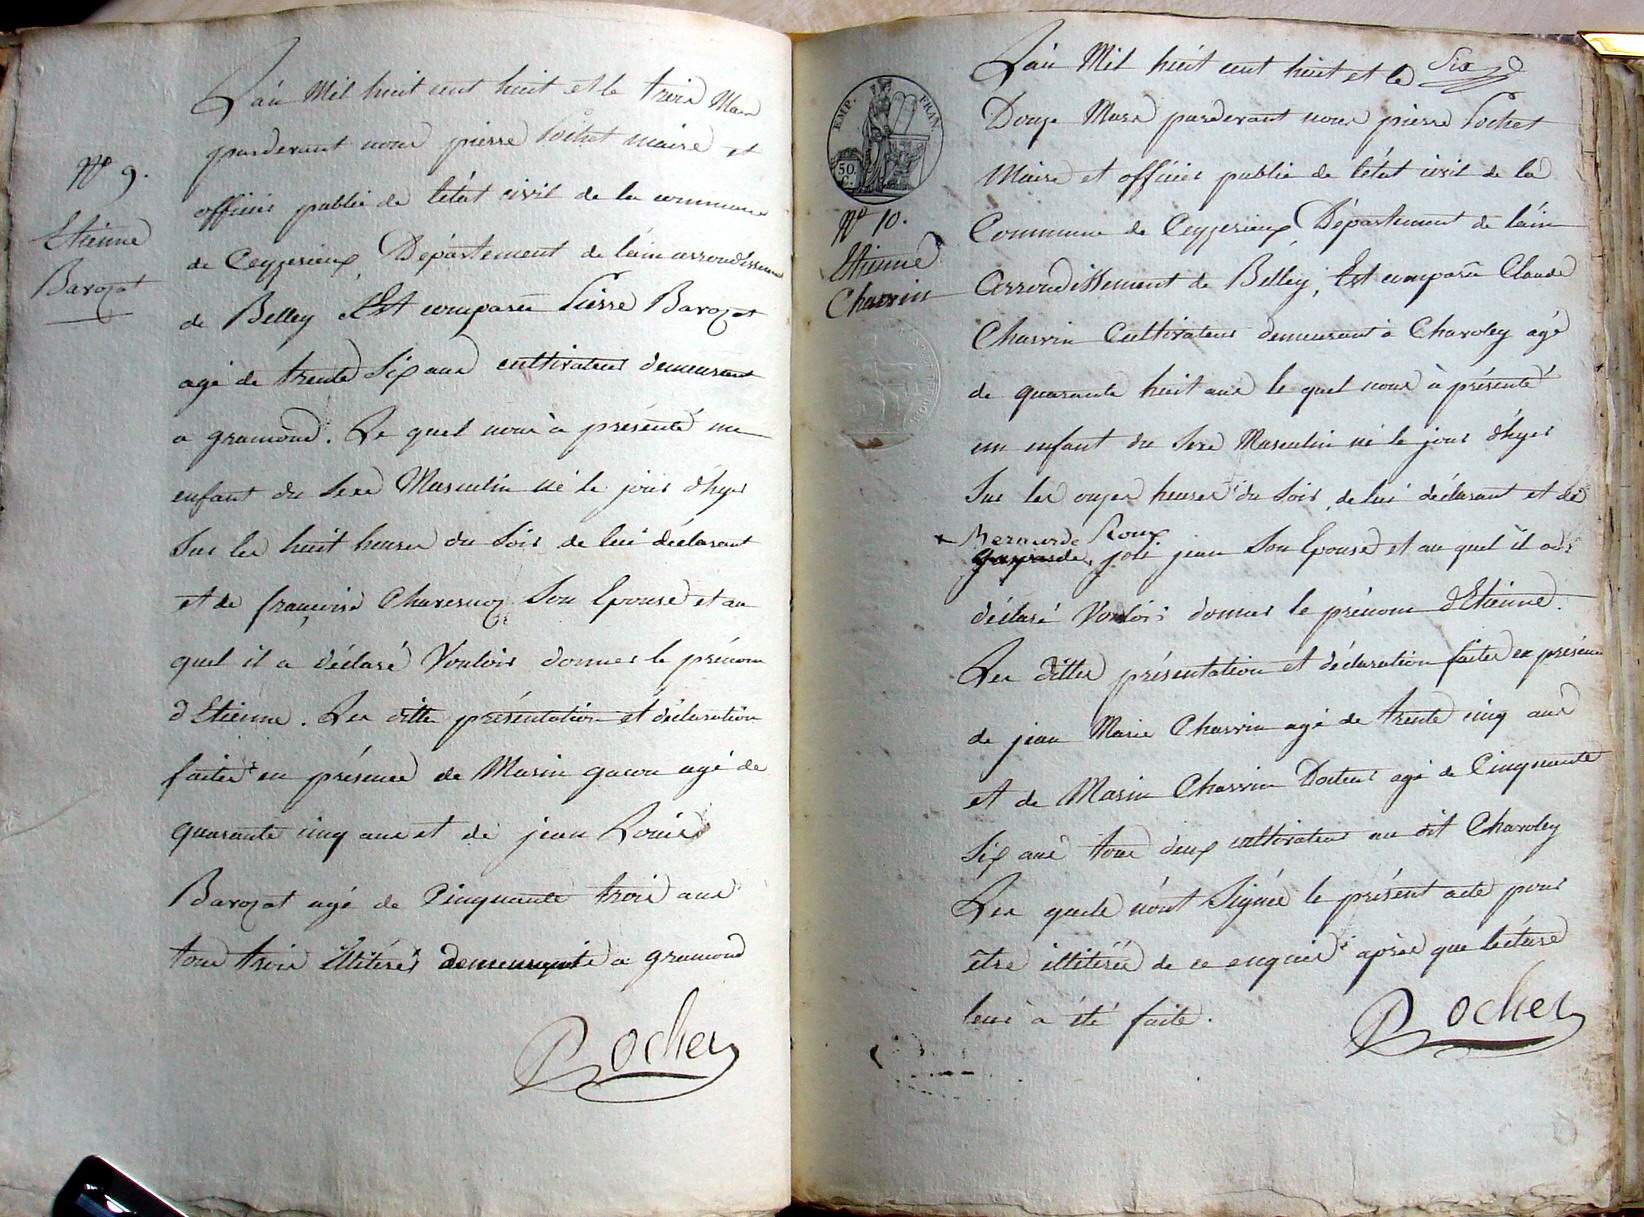 L'an Mil huit cent huit et le trois Mars
pardevant nous pierre Pochet maire et
officier public de l'état civil de la commune
de Ceyzerieux Département de l'ain arrondissement
de Belley Est comparu Pierre Barozat
agé de trente Six ans cultivateur demeurant
a gramond. Le quel nous à présenté un
enfant du Sexe Masculin né le jour d'hyer
Sur les huit heures du Soir de lui déclarant
et de françoise Son Epouse et au
quel il a déclaré Vouloir donner le prénom
d'Etienne. Les ditte présentation et déclaration
faites en présence de Marin gacon agé de
quarante cinq ans et de jean Louis
Barozat agé de Cinquante trois ans
tous trois illitérés demeurants a gramond
Nº 9.
Etienne
Barozat
Pochet
Six
L'an Mil huit cent huit et le
Douze Mars pardevant nous pierre Pochet
Maire et officier public de l'état civil de la
Commune de Ceyzerieux Département de l'ain
Arrondissement de Belley, Est comparu Claude
Charvin Cultivateur demeurant à Charoley agé
de quarante huit ans le quel nous à présenté
un enfant du Sexe Masculin né le jour d'hyer
Sur les onzes heures du Soir, de lui déclarant et de
Bernarde Roux
jean Son Epouse et au quel il a
déclaré Vouloir donner le prénom d'Etienne.
Les dittes présentation et déclaration faites en présence
de jean Marie Charvin agé de trente cinq ans
et de Marin Charvin agé de Cinquante
Six ans tous deux cultivateur au dit Charoley
Les quels n'ont Signée le présent acte pour
être illitérée de ce enquis après que lecture
leur à été faite.
EMP. FRAN.
50.
C.
Nº 10.
Etienne
Charvin
Pochet